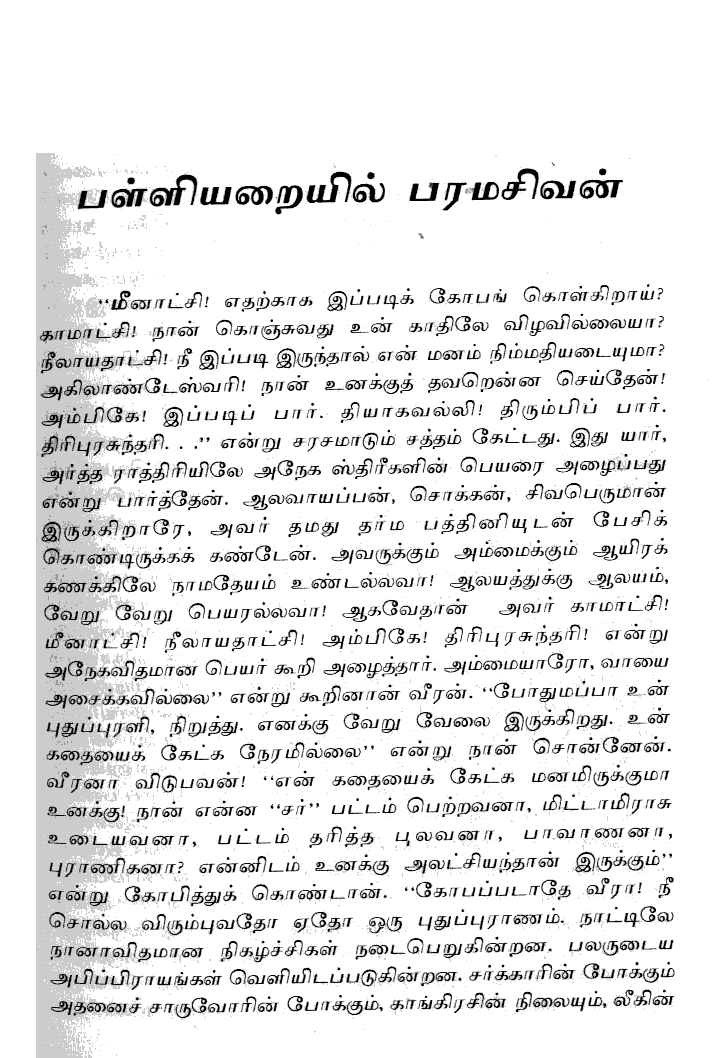 பள்ளியறையில் பரமசிவன்
“மீனாட்சி! எதற்காக இப்படிக் கோபங் கொள்கிறாய்?
காமாட்சி! நான் கொஞ்சுவது உன் காதிலே விழவில்லையா?
நீலாயதாட்சி! நீ இப்படி இருந்தால் என் மனம் நிம்மதியடையுமா?
அகிலாண்டேஸ்வரி! நான் உனக்குத் தவறென்ன செய்தேன்!
அம்பிகே! இப்படிப் பார். தியாகவல்லி! திரும்பிப் பார்.
திரிபுரசுந்தரி. . .” என்று சரசமாடும் சத்தம் கேட்டது. இது யார்,
அர்த்த ராத்திரியிலே அநேக ஸ்திரீகளின் பெயரை அழைப்பது
என்று பார்த்தேன். ஆலவாயப்பன், சொக்கன், சிவபெருமான்
இருக்கிறாரே, அவர் தமது தர்ம பத்தினியுடன் பேசிக்
கொண்டிருக்கக் கண்டேன். அவருக்கும் அம்மைக்கும் ஆயிரக்
கணக்கிலே நாமதேயம் உண்டல்லவா! ஆலயத்துக்கு ஆலயம்,
வேறு வேறு பெயரல்லவா! ஆகவேதான் அவர் காமாட்சி!
மீனாட்சி! நீலாயதாட்சி! அம்பிகே! திரிபுரசுந்தரி! என்று
அநேகவிதமான பெயர் கூறி அழைத்தார். அம்மையாரோ, வாயை
அசைக்கவில்லை” என்று கூறினான் வீரன். “போதுமப்பா உன்
புதுப்புரளி, நிறுத்து. எனக்கு வேறு வேலை இருக்கிறது. உன்
கதையைக் கேட்க நேரமில்லை” என்று நான் சொன்னேன்.
வீரனா விடுபவன்! “என் கதையைக் கேட்க மனமிருக்குமா
உனக்கு! நான் என்ன “சர்” பட்டம் பெற்றவனா, மிட்டாமிராசு
உடையவனா, பட்டம் தரித்த புலவனா, பாவாணனா,
புராணிகனா? என்னிடம் உனக்கு அலட்சியந்தான் இருக்கும்”
என்று கோபித்துக் கொண்டான். “கோபப்படாதே வீரா! நீ
சொல்ல விரும்புவதோ ஏதோ ஒரு புதுப்புராணம். நாட்டிலே
நானாவிதமான நிகழ்ச்சிகள் நடைபெறுகின்றன. பலருடைய
அபிப்பிராயங்கள் வெளியிடப்படுகின்றன. சர்க்காரின் போக்கும்
அதனைச் சாருவோரின் போக்கும், காங்கிரசின் நிலையும், லீகின்